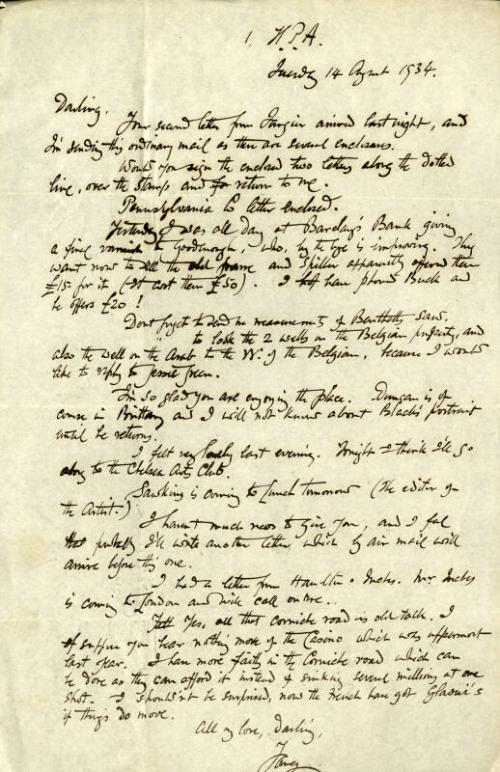 1, W.P.A.
Tuesday 14 August 1934.
Darling,
Your second letter from Tangier arrived last night, and
I'm sending this ordinary mail as there are several enclosures.
Would you sign the enclosed two letters along the dotted
line, over the stamps and return to me.
Pennsylvania Co letter enclosed.
Yesterday I was all day at Barclay's Bank giving
a final varnish to Goodenough, who, by the bye is improving. They
want now to sell the old frame and Spiller apparently offered them
£15 for it (It cost them £50). I have phoned Buck and
he offers £20!
Dont forget to send me measurements of
to look the 2 wells on the Belgian property, and
also the well on the Arab to the W. of the Belgian, because I would
like to reply to Jessie Green.
I'm so glad you are enjoying the place. Duncan is of
course in Brittany and I will not know about Black's portrait
until he returns.
I felt very lonely last evening. Tonight I think I'll go
along to the Chelsea Arts Club.
is coming to lunch tomorrow (The editor of
the Artist.)
I havent much news to give you, and I feel
that probably I'll write another letter, which by air mail will
arrive before this one.
I had a letter from Hamilton & Inches. Mr Inches
is coming to London and will call on me.
Yes, all that Corniche road is old talk. I
suppose you hear nothing more of the Casino which was uppermost
last year. I have more faith in the Corniche road which can
be done as they can afford it instead of sinking several millions at one
shot. I shouldn't be surprised, now the French have got
if things do move.
All my love, Darling,